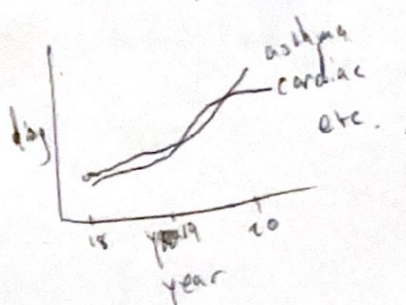 asthma
cardiac
etc.
diag
18 19 20
year